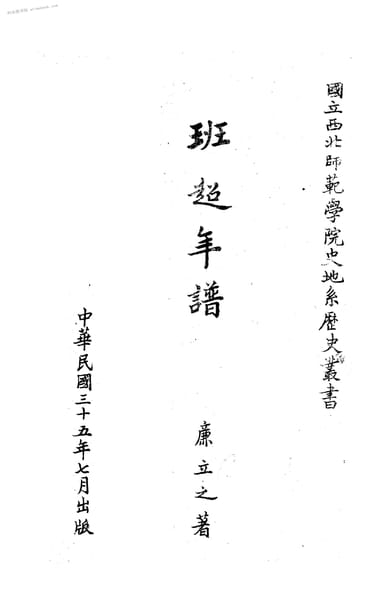 國立西北師範學院史地系歷史叢書
班超年譜
廉立之著
中華民國三十五年七月出版